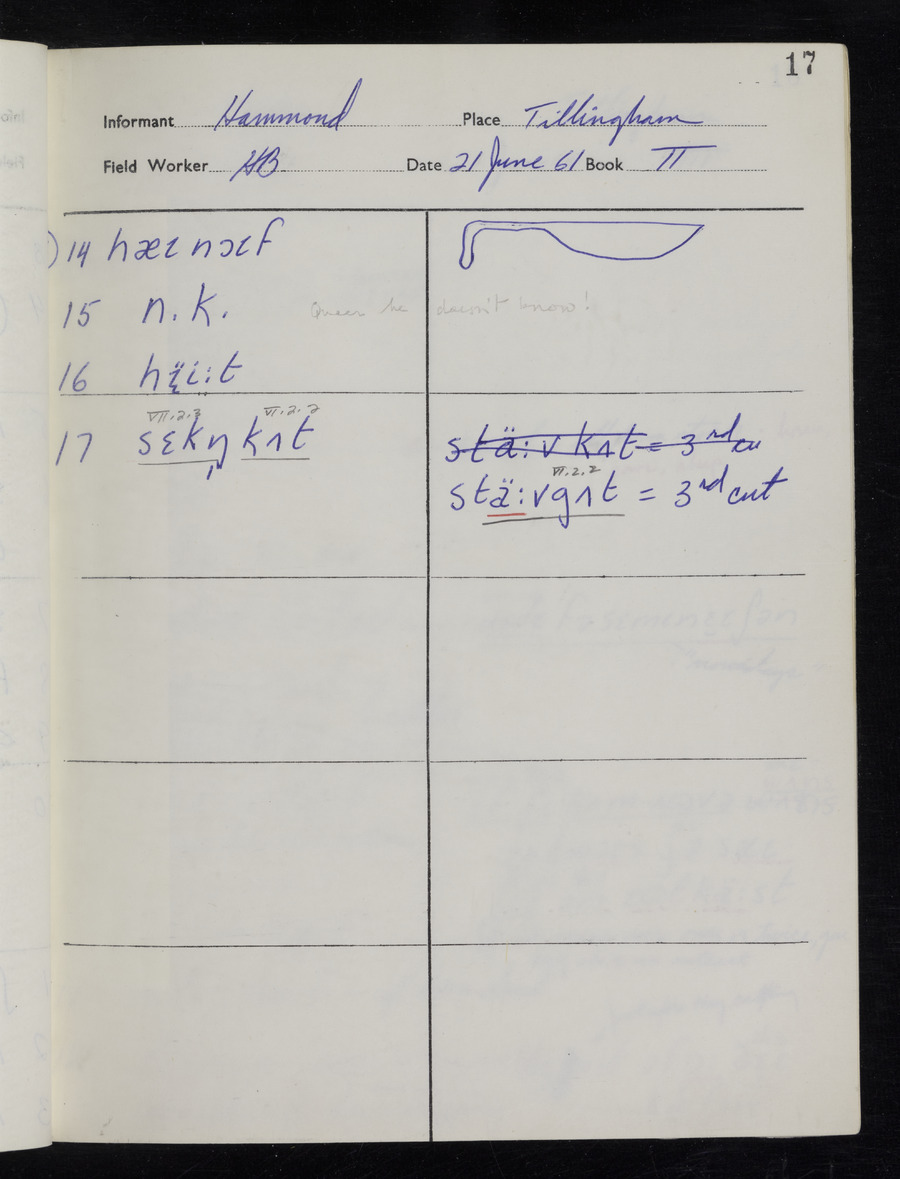 17
Informant Hammond Place Tillingham
Field Worker HB Date 21 June 61 Book II
14 hæɪ nɔɪf
15 n.k. Queer he doesn't know!
16 hë̞i:t
VII.2.3 VI.2.2
17 sɛkn̩ kʌt
stä:v kʌt = 3rd cu
VII.2.2
stä:vgʌt = 3rd cut